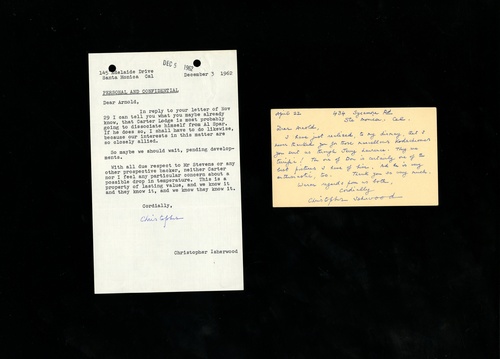 DEC 5 1962
145 Adelaide Drive
Santa Monica Cal December 3 1962
PERSONAL AND CONFIDENTIAL
Dear Arnold,
In reply to your letter of Nov
29 I can tell you what you maybe already
know, that Carter Lodge is most probably
going to dissociate himself from Al Spar.
If he does so, I shall have to do likewise,
because our interests in this matter are
so closely allied.
So maybe we should wait, pending develop-
ments.
With all due respect to Mr Stevens or any
other prospective backer, neither Carter
nor I feel any particular concern about a
possible drop in temperature. This is a
property of lasting value, and we know it
and they know it, and we know they know it.
Cordially,
Christopher
Christopher Isherwood
April 22 434 Sycamore Rd.
Sta Monica, Cal.
Dear Arnold,
I have just realized, to my dismay, that I
never thanked you for those marvellous Kodachromes
you sent us through Jerry Lawrence. They are
terrific! The one of Don is certainly one of the
best pictures I have of him. And he is very
enthusiastic, too. Thank you so very much.
Warm regards from us both,
Cordially
Christopher Isherwood